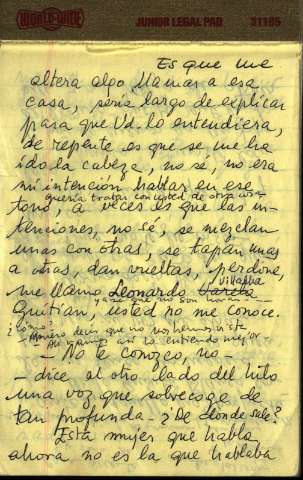 WORLD-WIDE
JUNIOR LEGAL PAD
31185
Es que me
altera algo llamar a esa
casa, sería largo de explicar
para que Ud. lo entendiera,
de repente es que se me ha
ido la cabeza, no sé, no era
mi intención hablar en ese
quería tratar con usted de otra cosa
tono, a veces es que las in-
tenciones, no sé, se mezclan
unas con otras, se tapan unas
a otras, dan vueltas, perdone,
Villalba
me llamo Leonardo Varela
ya sé que no son horas
Guitian, usted no me conoce.
¿Cómo?
Quiero decir que no nos hemos visto
Ah, vamos, así lo entiendo mejor
- No te conozco, no -
- dice al otro lado del hilo
una voz que sobrecoge de
tan profunda - ¿De dónde sale?
Esta mujer que habla
ahora no es la que hablaba